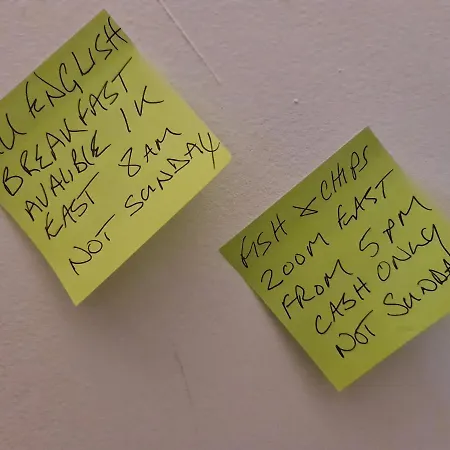 ENGLISH
BREAKFAST
AVALIBLE 1K
EAST 8AM
NOT SUNDAY
FISH & CHIPS
200M EAST
FROM 5PM
CASH ONLY
NOT SUNDAY